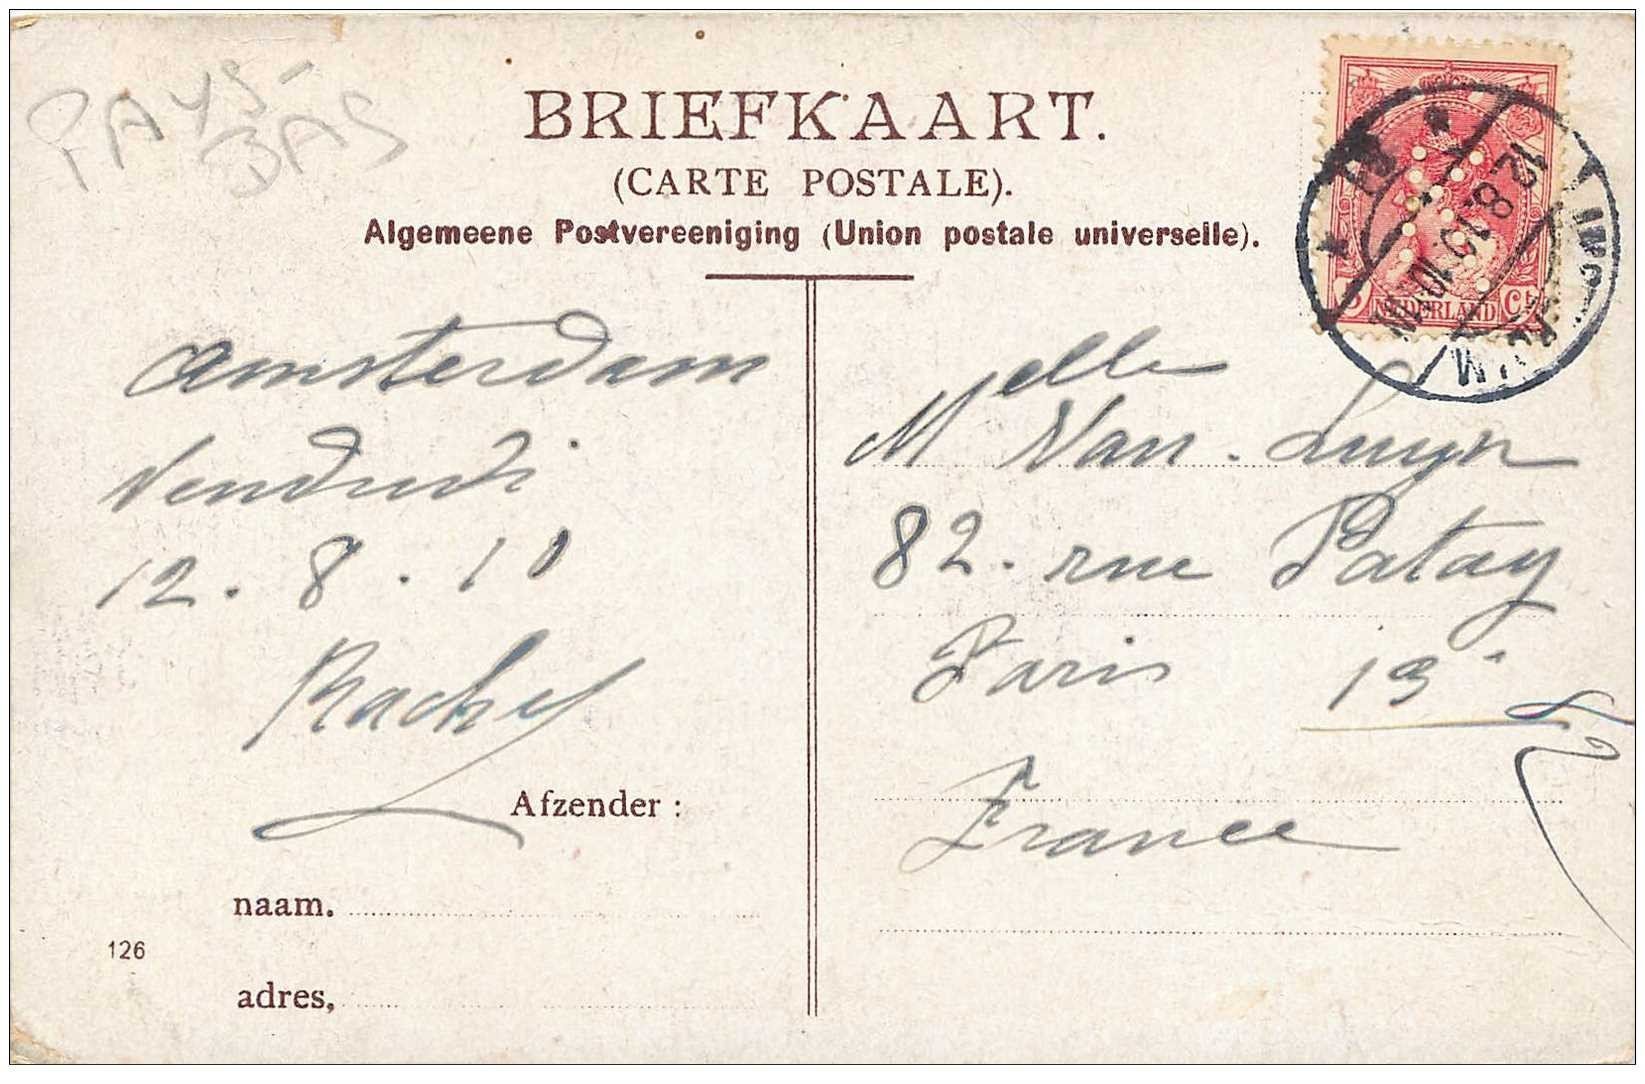 PAYS-
BAS
BRIEFKAART.
(CARTE POSTALE).
Algemeene Postvereeniging (Union postale universelle).
NEDERLAND
Ct
12.8.10
Amsterdam
Vendredi
12.8.10
Rachel
Afzender:
naam.
adres.
126
Melle Van-Luyn
82. rue Patay
Paris 13
France